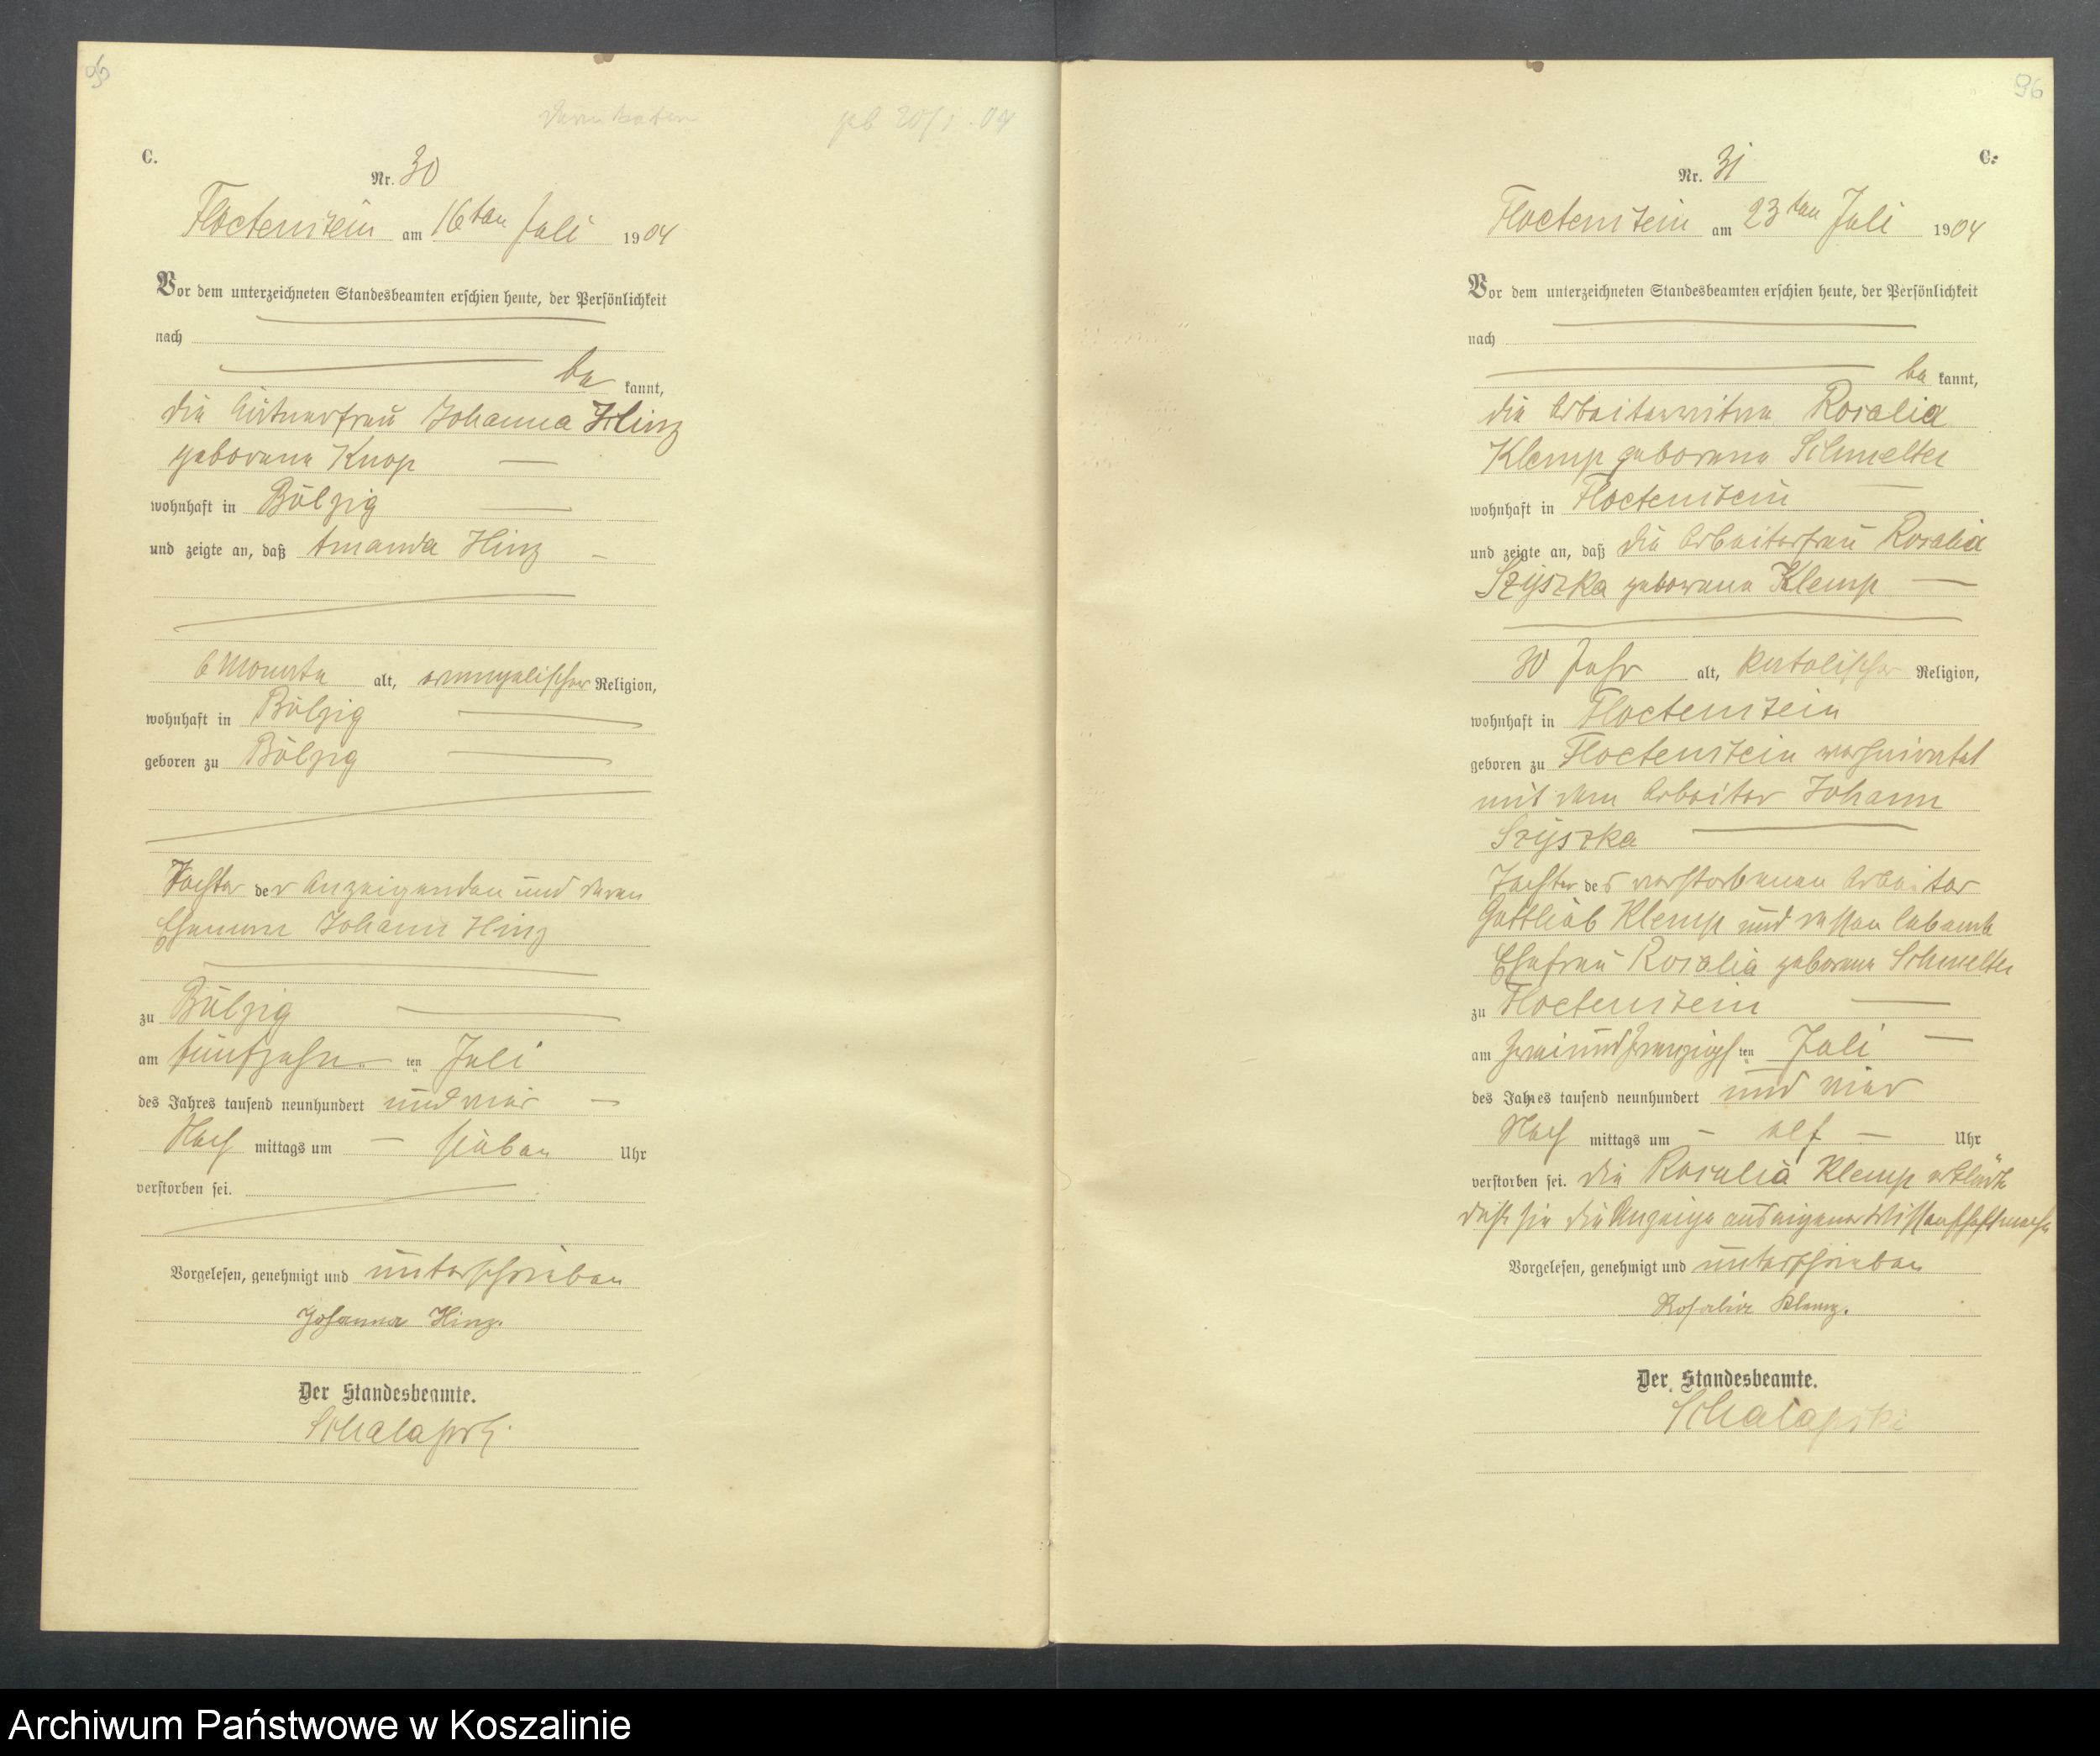 C.
Nr. 30
Floetenstein am 16ten Juli 1904
Vor dem unterzeichneten Standesbeamten erschien heute, der Persönlichkeit
nach
be kannt,
die Büdnerfrau Johanna Hinz
geborene Knop
wohnhaft in Bölzig
und zeigte an, daß Amanda Hinz
6 Monate alt, evangelischer Religion,
wohnhaft in Bölzig
geboren zu Bölzig
Tochter der Anzeigenden und deren
Ehemann Johann Hinz
zu Bölzig
am fünfzehn ten Juli
des Jahres tausend neunhundert und vier
Nach mittags um sieben Uhr
verstorben sei.
Vorgelesen, genehmigt und unterschrieben
Johanna Hinz.
Der Standesbeamte.
96
C.
Nr. 31
Floetenstein am 23ten Juli 1904
Vor dem unterzeichneten Standesbeamten erschien heute, der Persönlichkeit
nach
be kannt,
die Arbeiterwitwe Rosalia
Klemp geborene Schmelter
wohnhaft in Floetenstein
und zeigte an, daß die Arbeiterfrau Rosalia
Szyszka geborene Klemp
30 Jahr alt, katolischer Religion,
wohnhaft in Floetenstein
geboren zu Floetenstein verheiratet
mit dem Arbeiter Johann
Szyszka
Tochter des verstorbenen Arbeiter
Gottlieb Klemp und dessen lebende
Ehefrau Rosalia geborene Schmelter
zu Floetenstein
am zweiundzwanzigs ten Juli
des Jahres tausend neunhundert und vier
Nach mittags um elf Uhr
verstorben sei. Die Rosalia Klemp erklärte
daß sie die Anzeige aus eigener Wissenschaft mache
Vorgelesen, genehmigt und unterschrieben
Rosalia Klemp.
Der Standesbeamte.
Schalapski
Archiwum Państwowe w Koszalinie